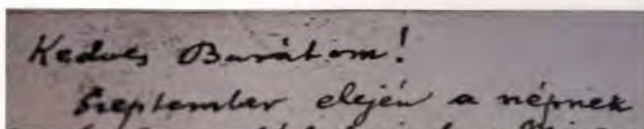 Kedves Barátom!
Szeptember elején a népnek